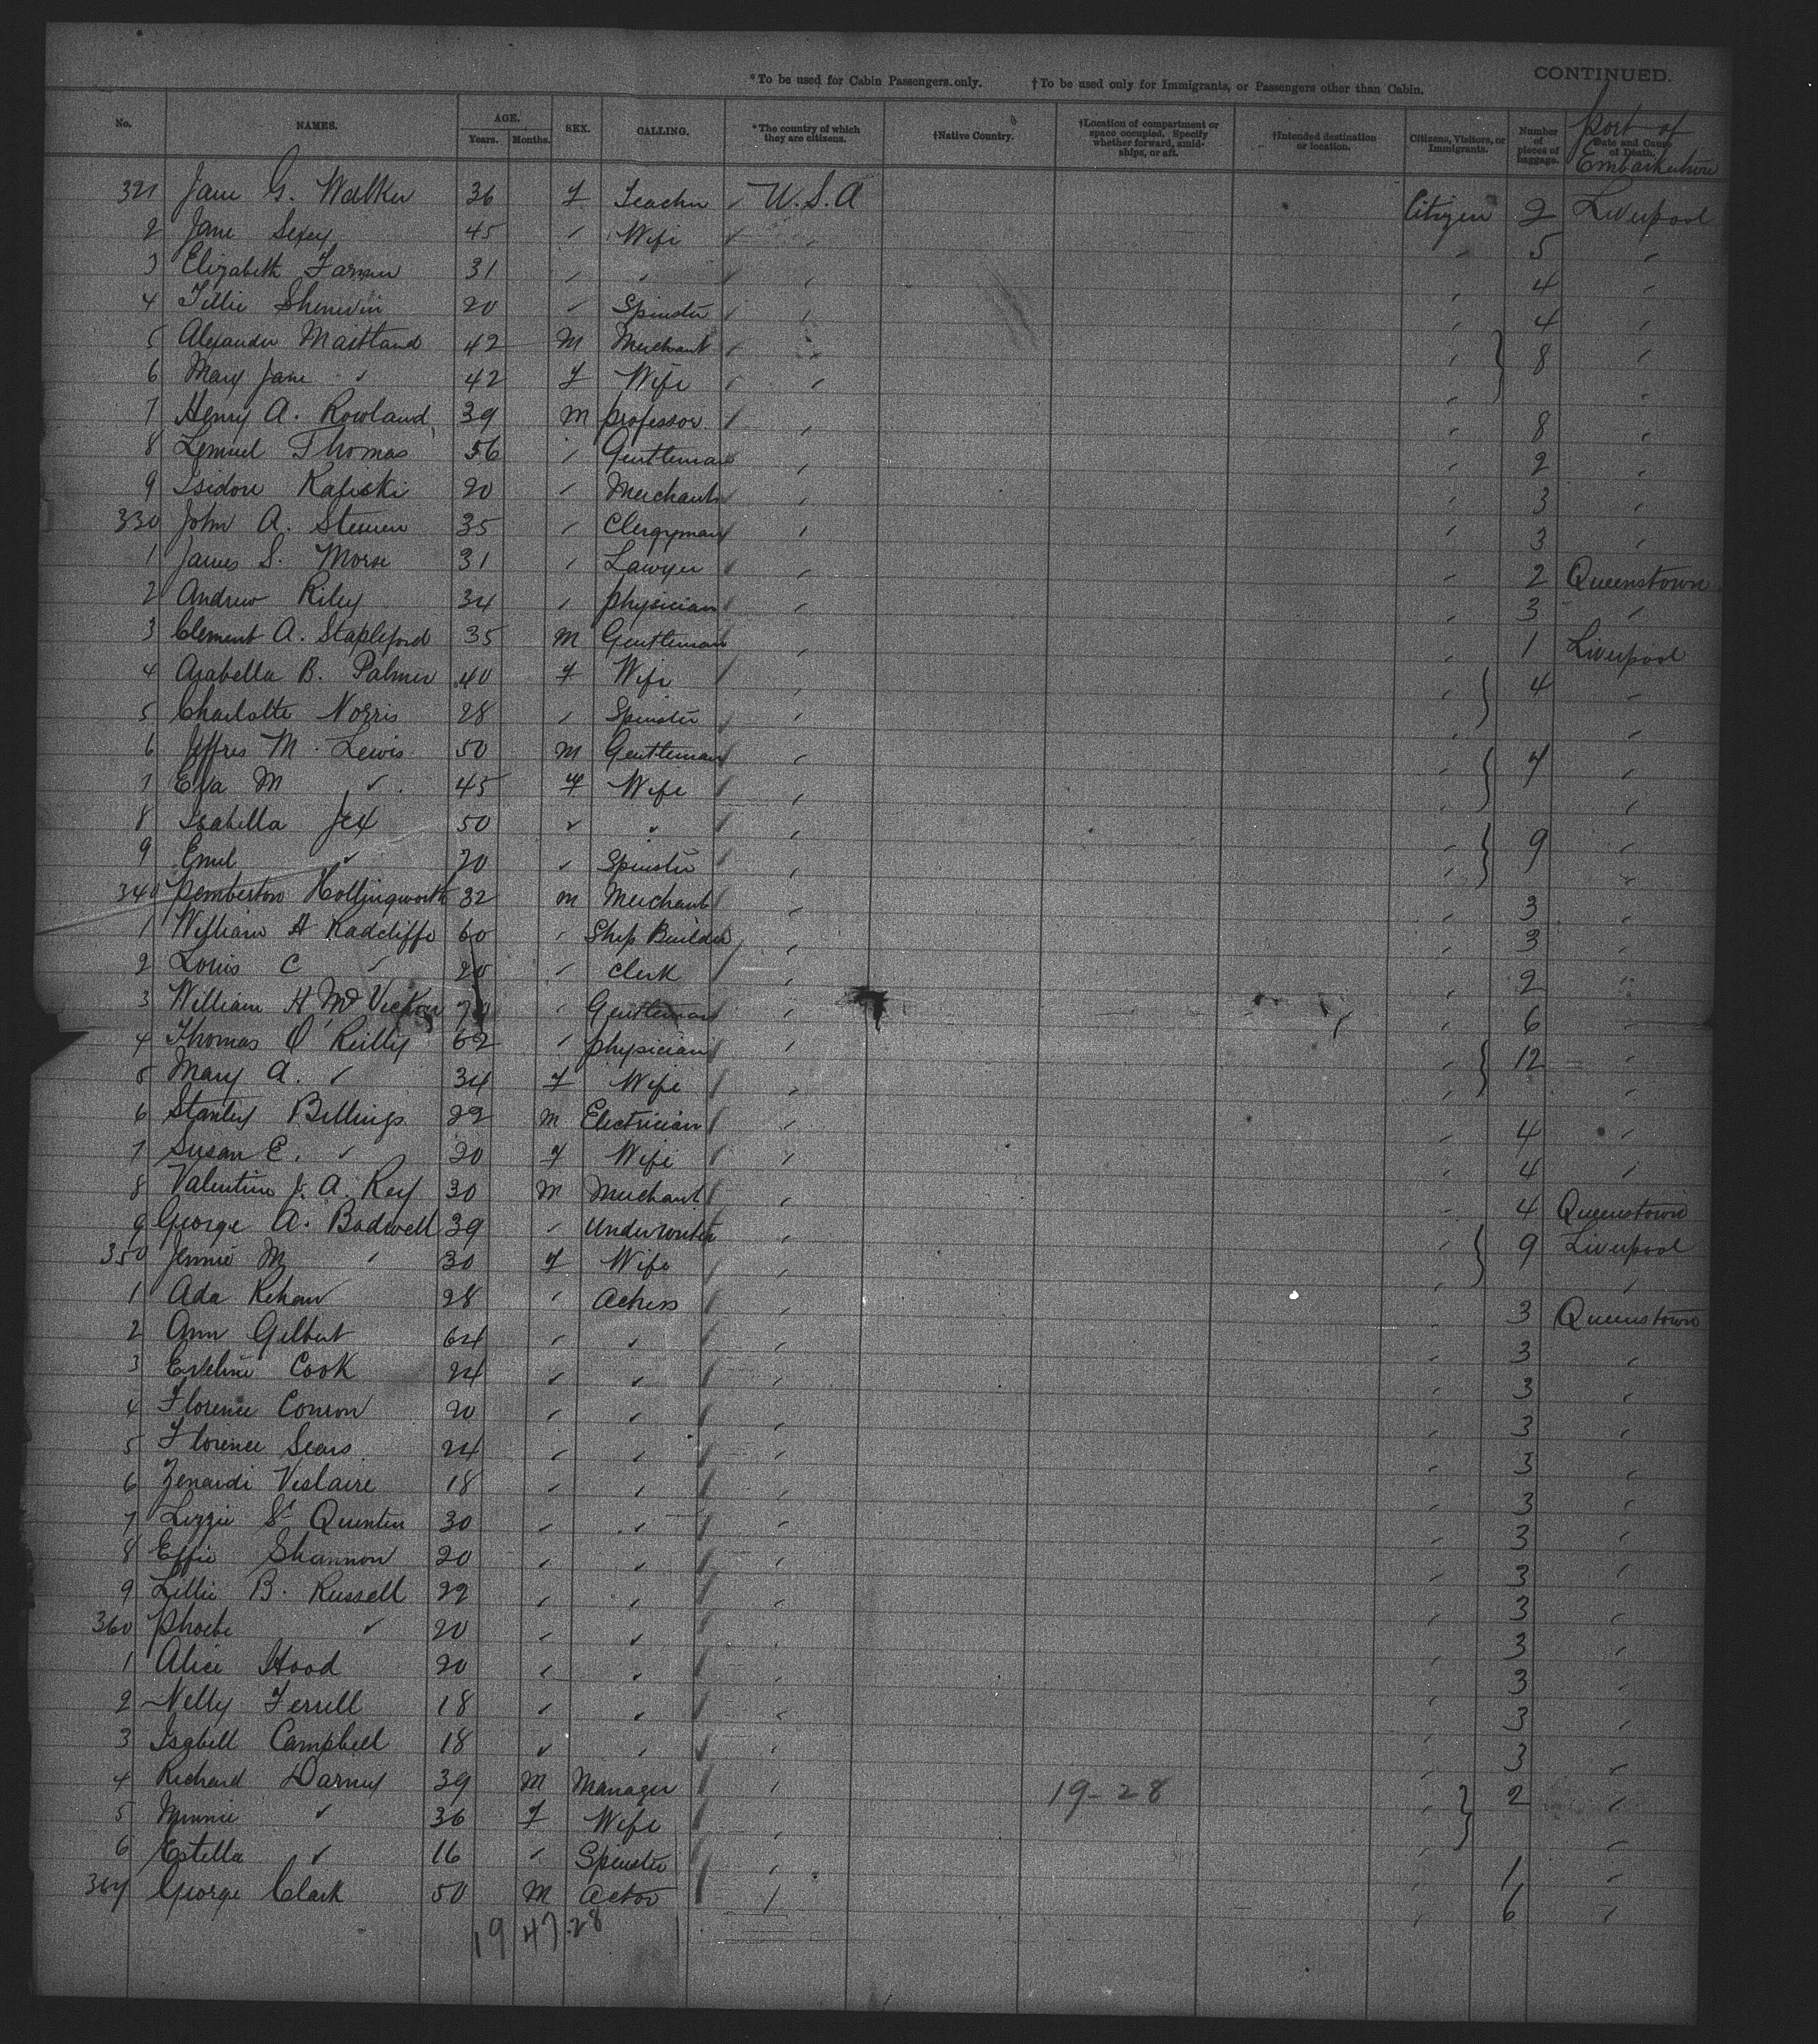 CONTINUED.
*To be used for Cabin Passengers only. †To be used only for Immigrants, or Passengers other than Cabin.
No. NAMES. AGE. Years. Months. SEX. CALLING. *The country of which they are citizens. †Native Country. †Location of compartment or space occupied. Specify whether forward, amidships, or aft. †Intended destination or location. Citizens, Visitors, or Immigrants. Number of pieces of baggage. Date and Cause of Death. Port of Embarkation
321 Jane G. Walker 36 F Teacher U.S.A Citizen 2 Liverpool
2 Jane 45 " Wife " " 5 "
3 Elizabeth Farmer 31 " " " " 4 "
4 Tillie Sherwin 20 " Spinster " " 4 "
5 Alexander Maitland 42 M Merchant " " 8 "
6 Mary Jane " 42 F Wife " " "
7 Henry A. Rowland 39 M Professor " " 8 "
8 Lemuel Thomas 56 " Gentleman " " 2 "
9 Isidore 20 " Merchant " " 3 "
330 John A. 35 " Clergyman " " 3 "
1 James S. Morse 31 " Lawyer " " 2 Queenstown
2 Andrew Riley 34 " Physician " " 3 "
3 Clement A. Stapleford 35 M Gentleman " " 1 Liverpool
4 Arabella B. Palmer 40 F Wife " " 4 "
5 Charlotte Norris 28 " Spinster " " "
6 Jeffres M. Lewis 50 M Gentleman " " 7 "
7 Eva M " 45 F Wife " " "
8 Isabella Jex 50 " " " " 9 "
9 " 20 " Spinster " " "
340 Pemberton Hollingworth 32 M Merchant " " 3 "
1 William H Radcliffe 60 " Ship Builder " " 3 "
2 Louis C " 20 " Clerk " " 2 "
3 William H McVicker " Gentleman " " 6 "
4 Thomas O'Reilly 62 " Physician " " 12 "
5 Mary A. " 34 F Wife " " "
6 Stanley Billings 22 M Electrician " " 4 "
7 Susan E. " 20 F Wife " " 4 "
8 Valentine J. A. Rey 30 M Merchant " " 4 Queenstown
9 George A. Badwell 39 " Underwriter " " 9 Liverpool
350 Jennie M " 30 F Wife " " "
1 Ada Rehan 28 " Actress " " 3 Queenstown
2 Ann Gilbert 64 " " " " 3 "
3 Eveline Cook 24 " " " " 3 "
4 Florence Conron 20 " " " " 3 "
5 Florence Sears 24 " " " " 3 "
6 Zenaidi Vislaire 18 " " " " 3 "
7 Lizzie St Quentin 30 " " " " 3 "
8 Effie Shannon 20 " " " " 3 "
9 Lillie B. Russell 22 " " " " 3 "
360 Phoebe " 20 " " " " 3 "
1 Alice Hood 20 " " " " 3 "
2 Nelly Ferrell 18 " " " " 3 "
3 Isabell Campbell 18 " " " " 3 "
4 Richard Darney 39 M Manager " 19-28 " 2 "
5 Minnie " 36 F Wife " " "
6 Estella " 16 " Spinster " " 1 "
367 George Clark 50 M Actor " " 6 "
19 47 28